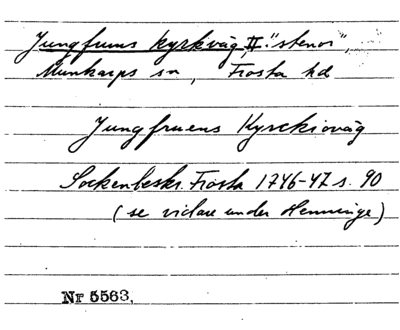 Jungfruns kyrkväg, II. "stenar",
Munkarps sn, Frosta hd
Jungfruens Kyrckioväg
Sockenbeskr. Frosta 1746-47 s. 90
(se vidare under Henninge)
Nr 5563.